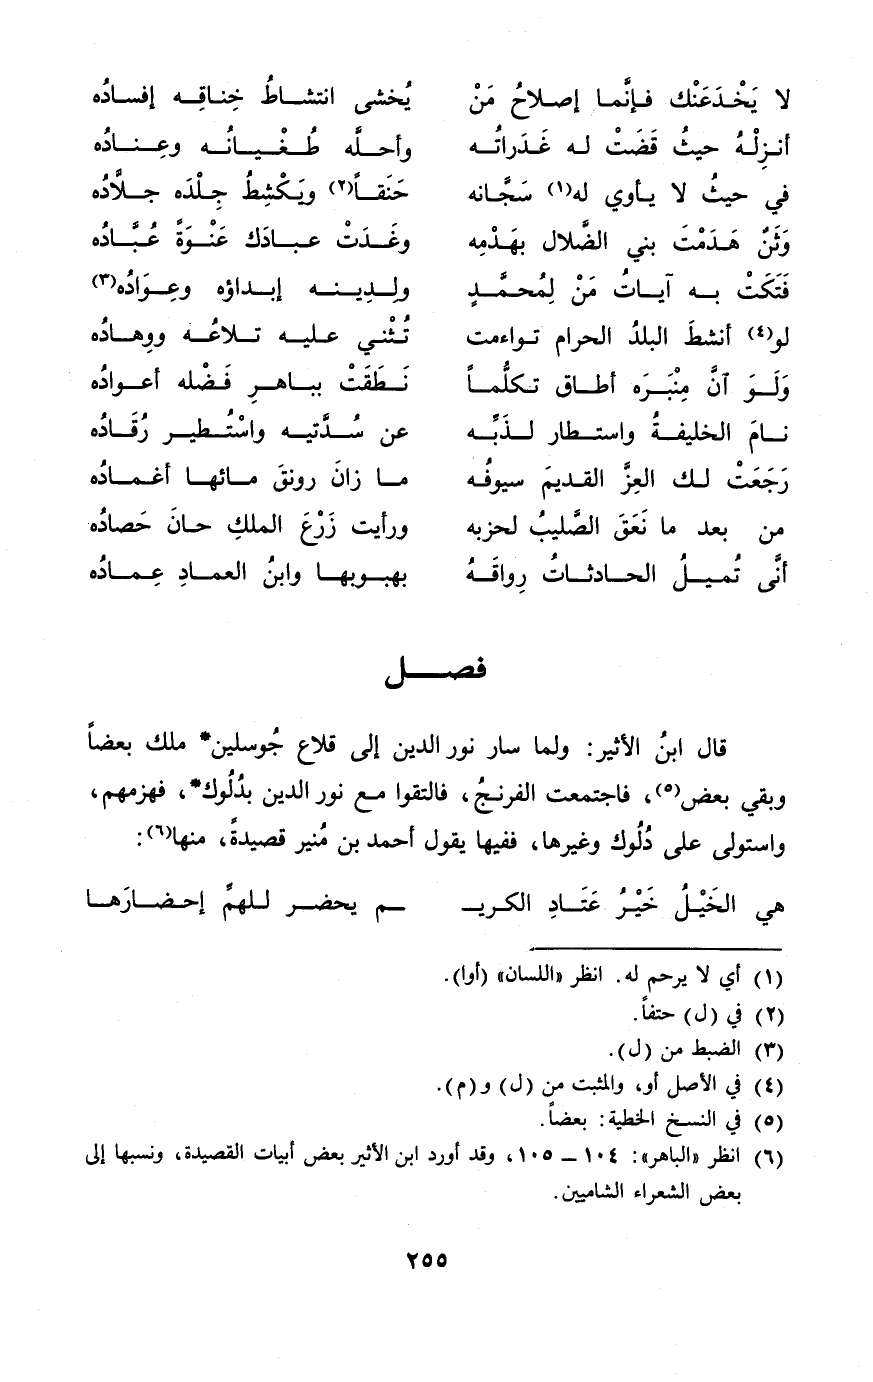 لا يَخْدَعَنْك فإنَّما إصلاحُ مَنْ يُخشى انتشاطُ خِناقِه إفسادُه
أنزِلْهُ حيثُ قَضَتْ له غَدَراتُه وأحلَّه طُغْيانُه وعِنادُه
في حيثُ لا يأوي له(١) سَجَّانه حَنَقاً(٢) ويَكْشِطُ جِلْدَه جلاَّدُه
وَثَنٌ هَدَمْتَ بني الضَّلال بهَدْمِه وغَدَتْ عبادَك عَنْوَةً عُبَّادُه
فَتَكَتْ به آياتُ مَنْ لِمُحمَّدٍ ولِدِينه إبداؤه وعِوَادُه(٣)
لو(٤) أنشطَ البلدُ الحرام تواءمت تُثْني عليه تلاعُه ووهادُه
وَلَو آنَّ مِنْبَرَه أطاق تكلُّماً نَطَقَتْ بباهرِ فَضْله أعوادُه
نامَ الخليفةُ واستطار لذَبِّه عن سُدَّتيه واسْتُطير رُقَادُه
رَجَعَتْ لك العِزَّ القديمَ سيوفُه ما زانَ رونقَ مائها أغمادُه
من بعد ما نَعَقَ الصَّليبُ لحزبه ورأيت زَرْعَ الملكِ حانَ حَصادُه
أنَّى تُميلُ الحادثاتُ رِواقَهُ بهبوبها وابنُ العمادِ عِمادُه
فصل
قال ابنُ الأثير: ولما سار نور الدين إلى قلاع جُوسلين* ملك بعضاً
وبقي بعض(٥)، فاجتمعت الفرنجُ، فالتقوا مع نور الدين بدُلُوك*، فهزمهم،
واستولى على دُلُوك وغيرها، ففيها يقول أحمد بن مُنير قصيدةً، منها(٦):
هي الخَيْلُ خَيْرُ عَتَادِ الكريـ ـم يحضر للهمِّ إحضارَها
(١) أي لا يرحم له. انظر «اللسان» (أوا).
(٢) في (ل) حتفاً.
(٣) الضبط من (ل).
(٤) في الأصل أو، والمثبت من (ل) و(م).
(٥) في النسخ الخطية: بعضاً.
(٦) انظر «الباهر»: ١٠٤ ـ ١٠٥، وقد أورد ابن الأثير بعض أبيات القصيدة، ونسبها إلى
بعض الشعراء الشاميين.
٢٥٥